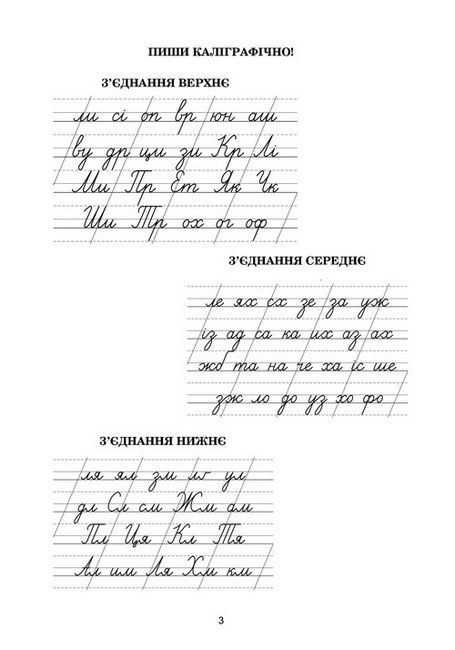 ПИШИ КАЛІГРАФІЧНО!
З’ЄДНАННЯ ВЕРХНЄ
ли сі оп вр юн аш
ву др цм зи Кр Лі
Ми Пр Ет Як Чк
Ши Тр ох ог оф
З’ЄДНАННЯ СЕРЕДНЄ
ле ях сх зе за уж
із ад са ка их аз ах
жб та на че ха іс ше
зж ло до уз хо фо
З’ЄДНАННЯ НИЖНЄ
ля ял зм ул
дл Сл см Жм ам
Пл Ця Кл Тя
Ал им Ля Хм км
3